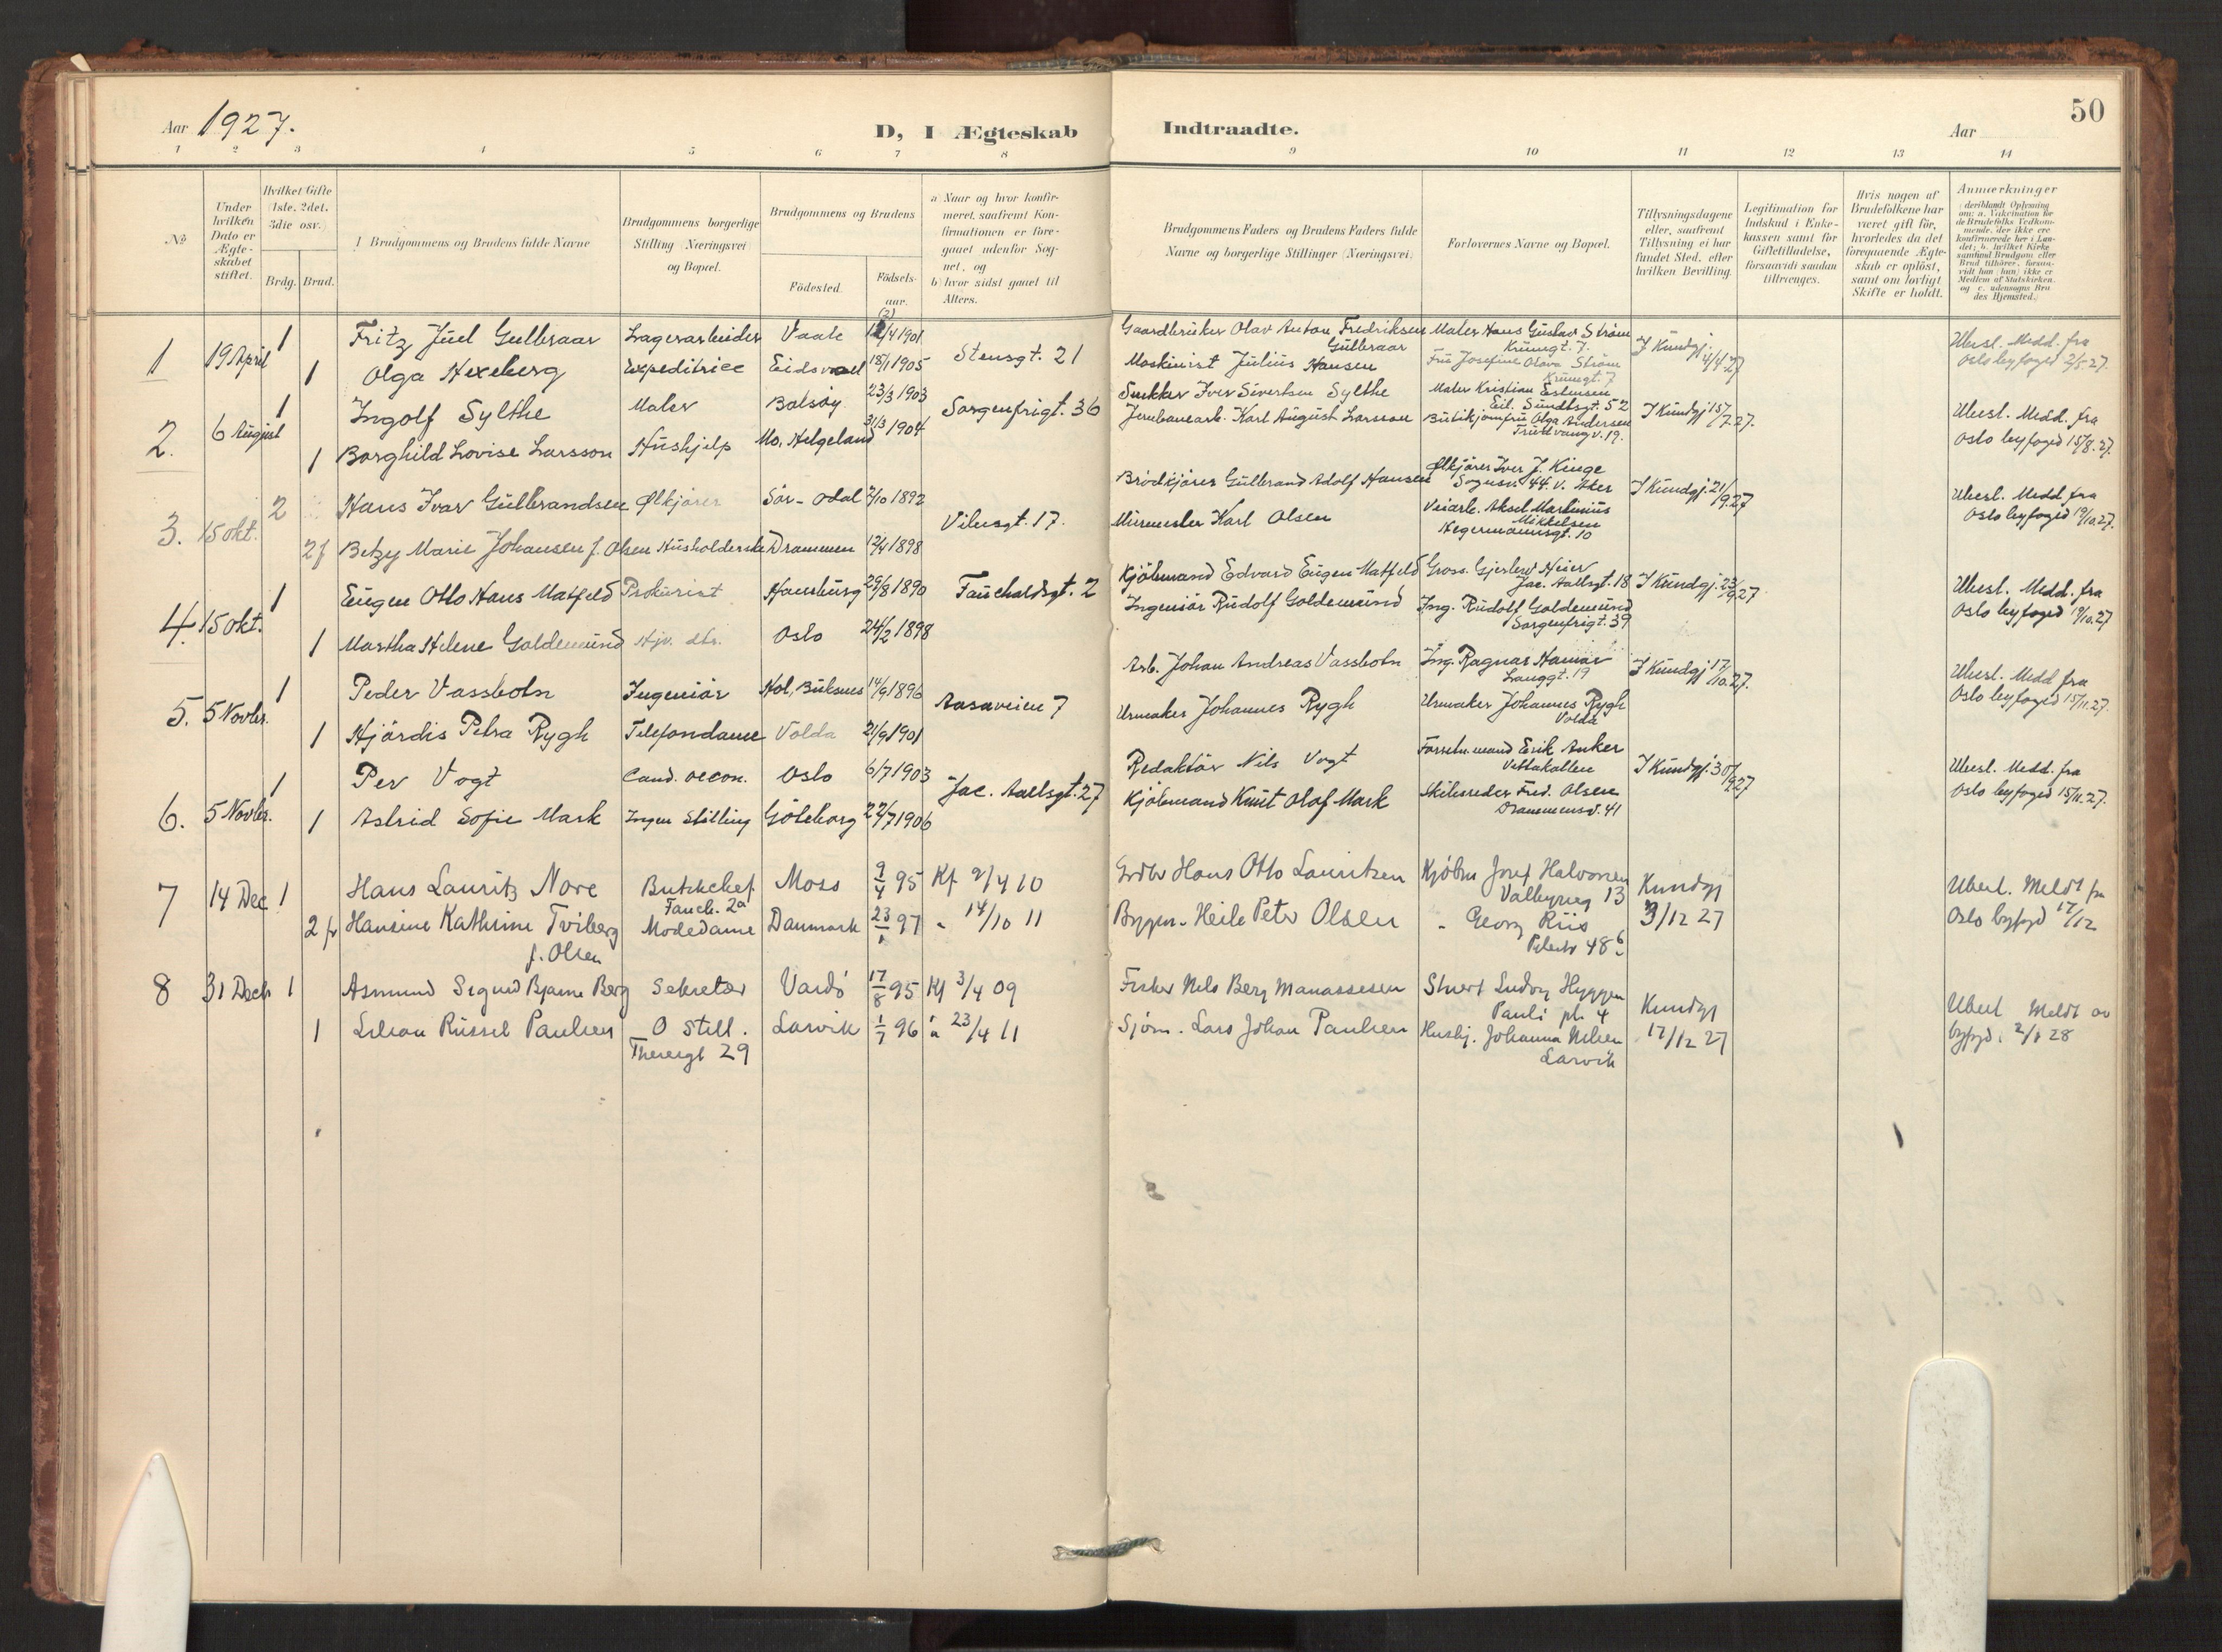 Aar 1927.
D, I Ægteskab
Indtraadte.
Aar
50
1 2 3 4 5 6 7 8 9 10 11 12 13 14
№
Under hvilken Dato er Ægteskabet stiftet.
Hvilket Gifte (1ste, 2det, 3die osv.)
Brdg. Brud.
Brudgommens og Brudens fulde Navne
Brudgommens borgerlige Stilling (Næringsvei) og Bopæl.
Brudgommens og Brudens
Födested.
Födselsaar.
a) Naar og hvor konfirmeret, saafremt Konfirmationen er foregaaet udenfor Sognet, og
b) hvor sidst gaaet til Alters.
Brudgommens Faders og Brudens Faders fulde Navne og borgerlige Stillinger (Næringsvei)
Forlovernes Navne og Bopæl.
Tillysningsdagene eller, saafremt Tillysning ei har fundet Sted, efter hvilken Bevilling.
Legitimation for Indskud i Enkekassen samt for Giftetilladelse, forsaavidt saadan tiltrænges.
Hvis nogen af Brudefolkene har været gift før, hvorledes da det foregaaende Ægteskab er opløst, samt om lovligt Skifte er holdt.
Anmærkninger (deriblandt Oplysning om: a. Vakcination for de Brudefolks Vedkommende, der ikke ere konfirmerede her i Landet; b. hvilket Kirkesamfund Brudgom eller Brud tilhører, forsaavidt han (hun) ikke er Medlem af Statskirken, og c. udensogns Brudes Hjemsted.)
1 19 April 1 Fritz Juel Gulbraar Lagerarbeider Vaale 12/4 1901 Stensgt. 21 Gaardbruker Olav Anton Fredriksen Gulbraar Maler Hans Gustav Ström Krumgt. 7. I Kundgj. 4/4 27 Uberl. Medd. fra Oslo byfoged 2/5.27.
1 Olga Hexeberg Expeditrice Eidsvoll 18/1 1905 Maskinist Julius Hansen Fru Josefine Olava Ström Krumgt. 7
2. 6 August 1 Ingolf Sylthe Maler Bolsøy 23/3 1903 Sorgenfrigt. 36 Snekker Iver Sivertsen Sylthe Maler Kristian Estensen Eil. Sundtsgt. 52 I Kundgj 15/7 27. Uberl. Medd. fra Oslo byfoged 15/8.27.
1 Borghild Lovise Larsson Hushjelp Mo, Helgeland 31/3 1904 Jernbanearb. Karl August Larsson Butikjomfru Olga Andersen Trudvangv. 19.
3. 15 okt. 2 Hans Ivar Gulbrandsen Ølkjörer Sör-Odal 2/10 1892 Vibesgt. 17. Brödkjörer Gulbrand Adolf Hansen Ølkjörer Iver J. Kinge Sognsv. 44. V. Aker I Kundgj. 21/9.27 Uberl. Medd fra Oslo byfoged 19/10.27.
2 f Betzy Marie Johansen f. Olsen Husholderske Drammen 12/4 1898 Murmester Karl Olsen Veiarb. Aksel Martinius Mikkelsen Hegermannsgt. 10
4. 15 okt. 1 Eugen Otto Hans Matfeld Prokurist Hamburg 29/8 1890 Fauchaldsgt. 2 Kjöbmand Edvard Eugen Matfeld Gross. Gjerlöv Heier Jac. Aallsgt. 18 I Kundgj. 23/9 27 Uberl. Medd. fra Oslo byfoged 19/10.27
1 Martha Helene Goldemund Hjv. dtr. Oslo 24/2 1898 Ingeniör Rudolf Goldemund Ing. Rudolf Goldemund Sorgenfrigt. 39
5. 5 Novbr. 1 Peder Vassbotn Ingeniör Hol, Buksnes 14/9 1896 Aasaveien 7 Arb. Johan Andreas Vassbotn Ing. Ragnar Hamar Langgt. 19 I Kundgj 17/10.27. Uberl. Medd fra Oslo byfoged 15/11.27.
1 Hjördis Petra Rygh Telefondame Volda 21/9 1901 Urmaker Johannes Rygh Urmaker Johannes Rygh Volda
6. 5 Novbr. 1 Per Vogt Cand. oecon. Oslo 6/7 1903 Jac. Aallsgt. 27 Redaktör Nils Vogt Forretn.mand Erik Anker Vettakollen I Kundgj. 30/9 27 Uberl. Medd. fra Oslo byfoged 15/11.27.
1 Astrid Sofie Mark Ingen Stilling Göteborg 22/7 1906 Kjöbmand Knut Olaf Mark Skibsreder Fred. Olsen Drammensv. 41
7 14 Dec 1 Hans Lauritz Nore Butikchef Fauch. 2a Moss 9/4 95 Kf 9/4 10 Grdbr Hans Otto Lauritzen Kjöbm Josef Halvorsen Valbyveg 13 Kundgj 3/12 27 Uberl. Meldt fra Oslo byfgd 17/12
2 fr Hansine Kathrine Tviberg f. Olsen Modedame Danmark 23/1 97 " 14/10 11 Byggm. Heile Petr Olsen " Georg Riis Pilestr 48 b
8 31 Decb 1 Asmund Sigurd Bjarne Berg Sekretær Vardö 17/8 95 Kf 3/4 09 Fisker Nils Berg Manassesen Stuert Ludvig Hyggen Pauli pl. 4 Kundgj 17/12 27 Uberl Meldt av byfgd. 2/1 28
1 Lilian Russel Paulsen O Still. Theresgt 29 Larvik 1/7 96 " 23/4 11 Sjöm. Lars Johan Paulsen Hushj. Johanna Nilsen Larvik